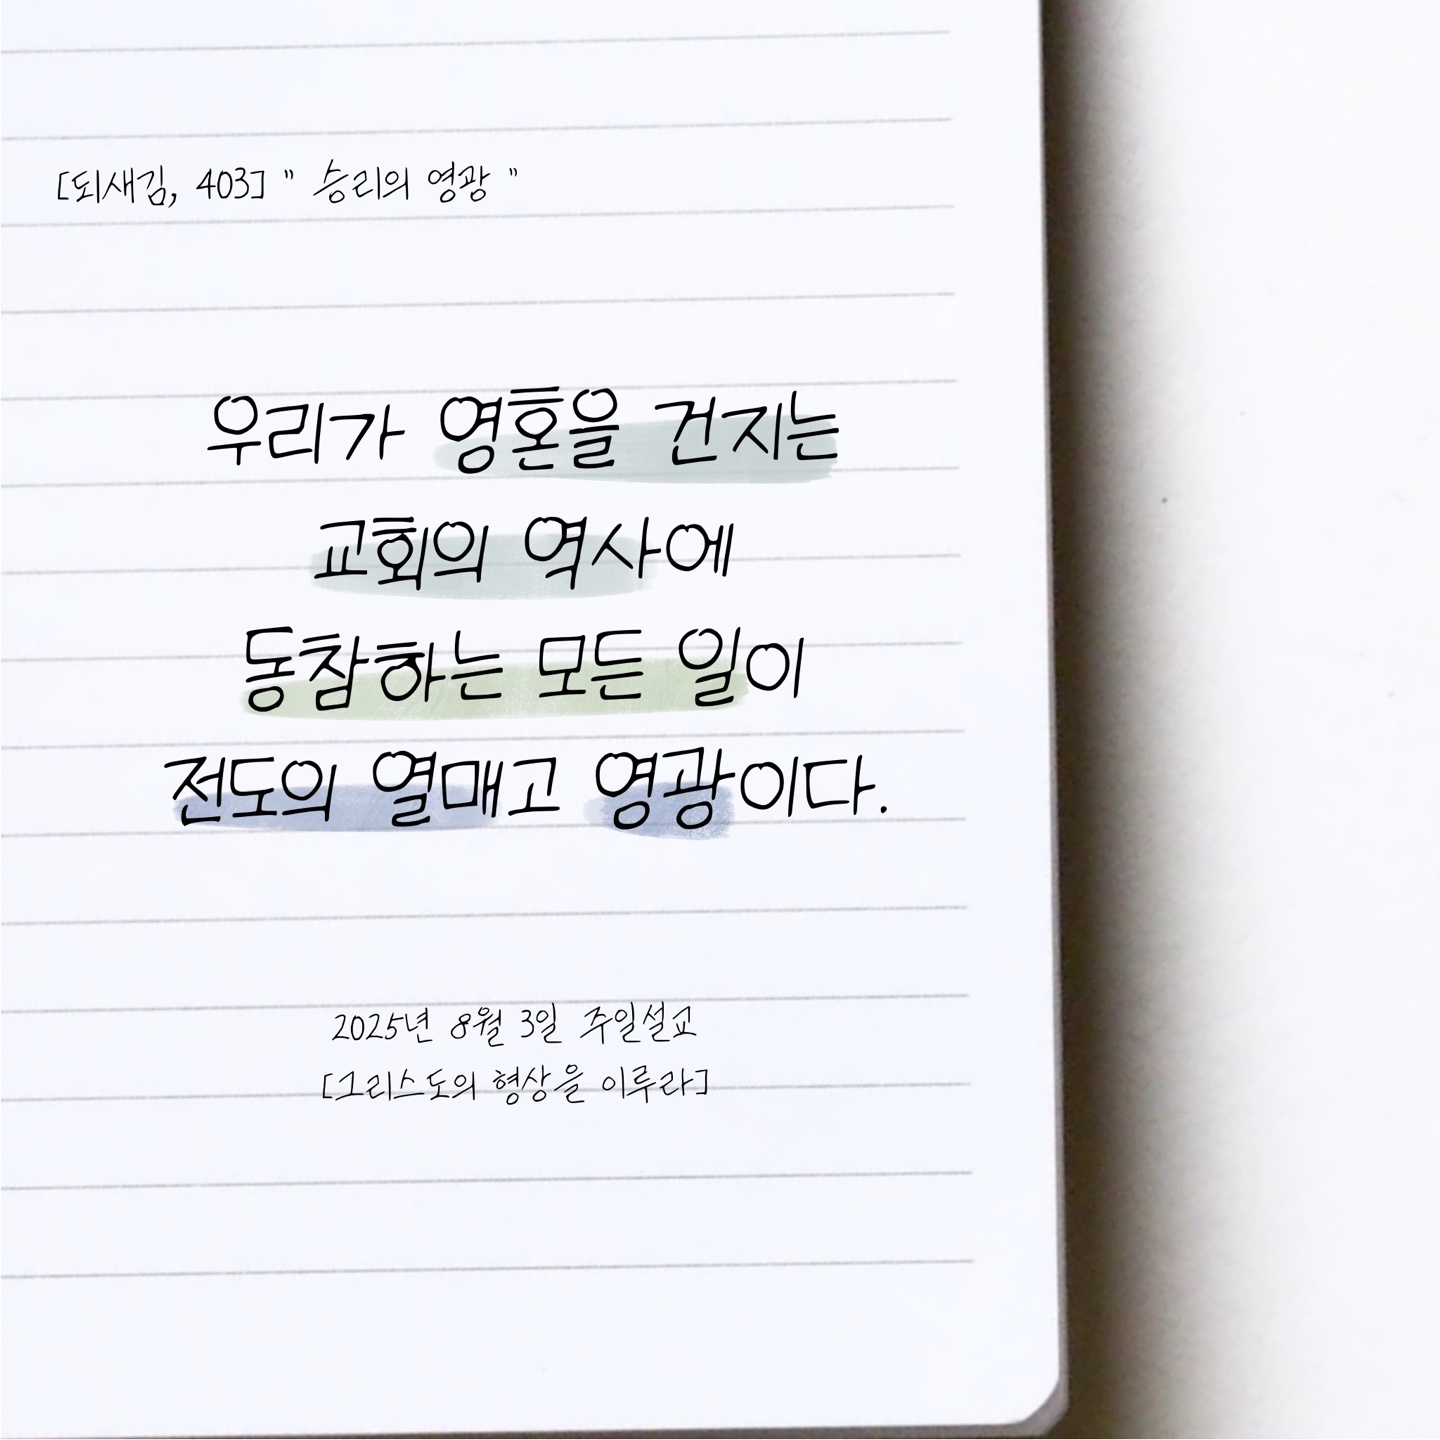 [되새김, 403] " 승리의 영광 "
우리가 영혼을 건지는
교회의 역사에
동참하는 모든 일이
전도의 열매고 영광이다.
2025년 8월 3일 주일설교
[그리스도의 형상을 이루라]